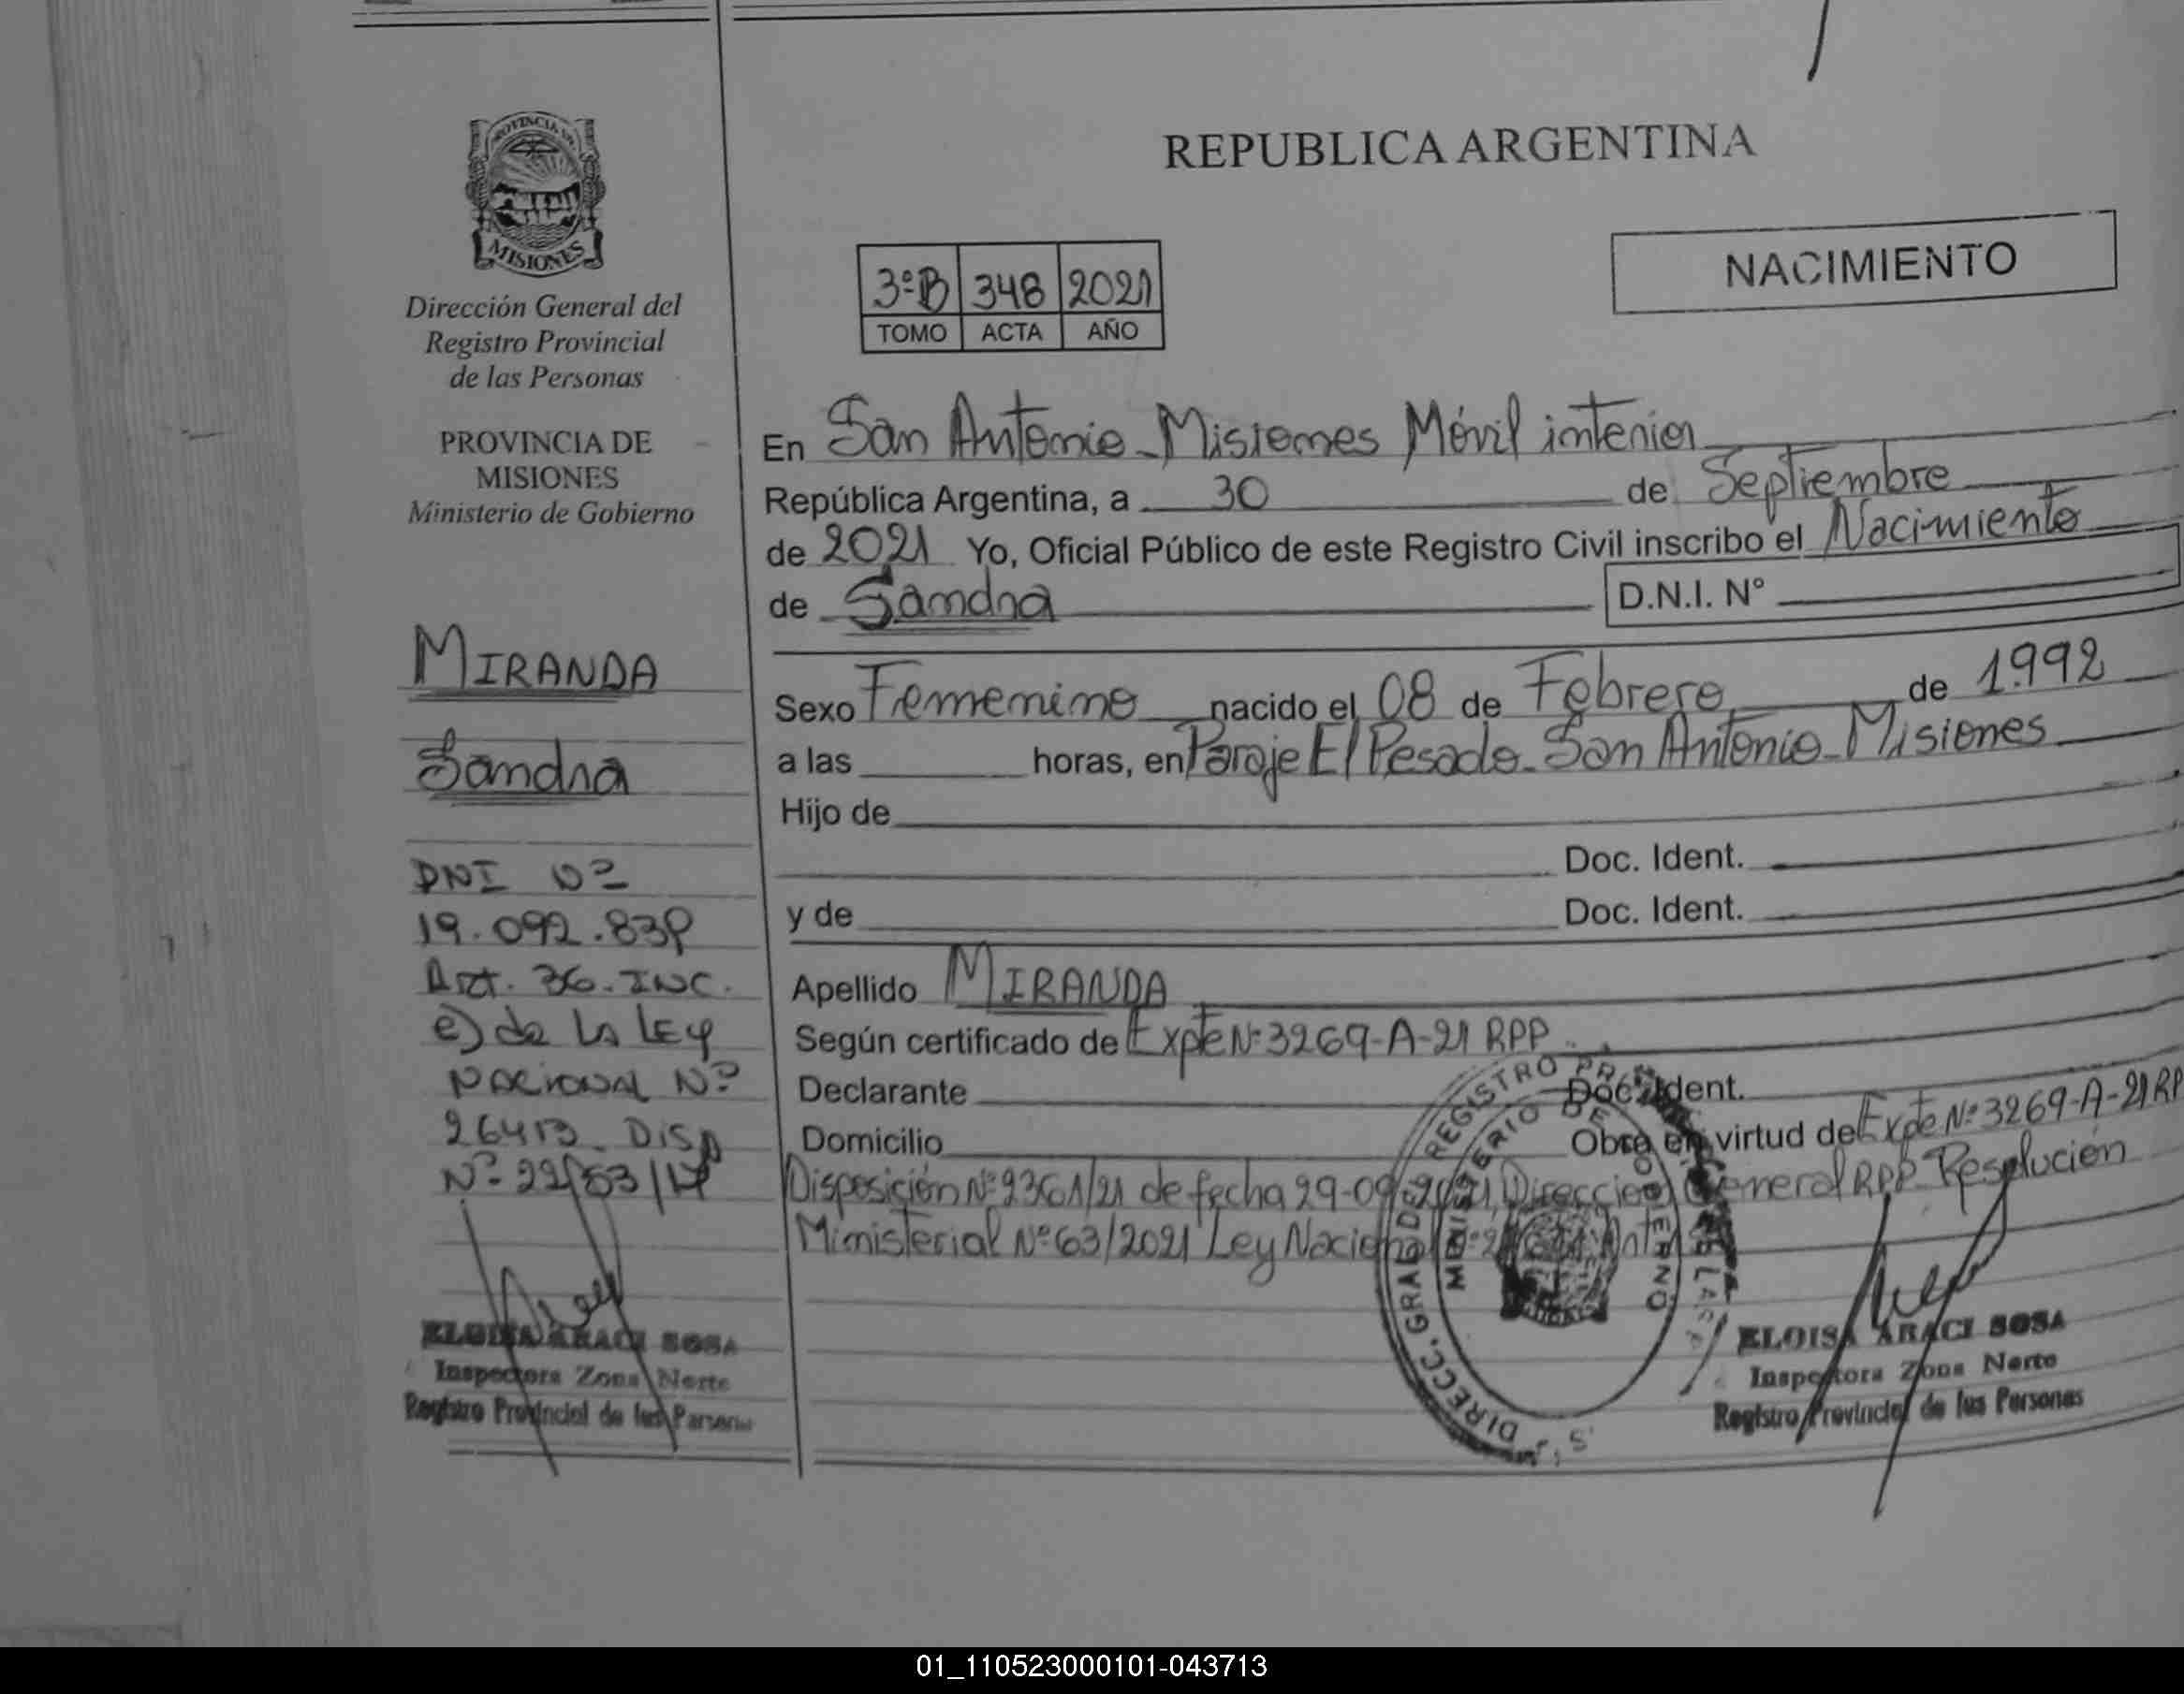 PROVINCIA DE
MISIONES
Dirección General del
Registro Provincial
de las Personas
PROVINCIA DE
MISIONES
Ministerio de Gobierno
MIRANDA
Sandra
DNI Nº
19.092.83
Art. 36. INC.
e) de la LEY
NACIONAL Nº
26413 DISP
Nº 22/53/17
ELOISA ARACI SOSA
Inspectora Zona Norte
Registro Provincial de las Personas
REPUBLICA ARGENTINA
NACIMIENTO
3ºB 348 2021
TOMO ACTA AÑO
En San Antonio - Misiones Móvil interior
República Argentina, a 30 de Septiembre
de 2021 Yo, Oficial Público de este Registro Civil inscribo el Nacimiento
de Sandra D.N.I. Nº
Sexo Femenino nacido el 08 de Febrero de 1.992
a las horas, en Paraje El Pesado - San Antonio - Misiones
Hijo de
Doc. Ident.
y de Doc. Ident.
Apellido MIRANDA
Según certificado de Expte Nº 3269-A-21 RPP
Declarante Doc. Ident.
Domicilio Obra en virtud de Expte Nº 3269-A-21 RP
Disposición Nº 2361/21 de fecha 29-09-2021, Direccion General RPP - Resolución
Ministerial Nº 63/2021 Ley Nacional
DIRECC. GRAL. DE REGISTRO
MINISTERIO DE GOBIERNO
ELOISA ARACI SOSA
Inspectora Zona Norte
Registro Provincial de las Personas
01_110523000101-043713